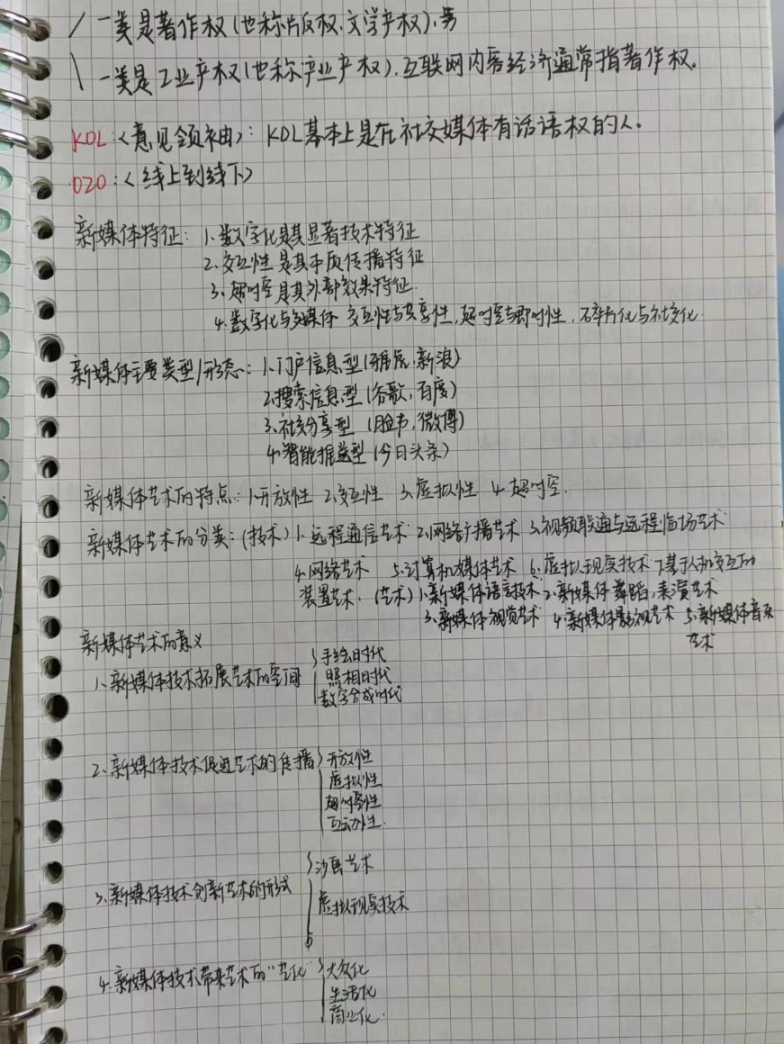 一类是著作权(也称版权、文学产权),另
一类是工业产权(也称产业产权),互联网内容经济通常指著作权。
KOL:<意见领袖>:KOL基本上是在社交媒体有话语权的人。
O2O:<线上到线下>
新媒体特征:1、数字化是其显著技术特征
2、交互性是其本质传播特征
3、超时空是其外部效果特征
4、数字化与多媒体 交互性与共享性,超时空与即时性,碎片化与社交化
新媒体主要类型/形态:1、门户信息型(网易,新浪)
2、搜索信息型(谷歌,百度)
3、社交分享型(脸书,微博)
4、智能推送型(今日头条)
新媒体艺术的特点:1、开放性 2、交互性 3、虚拟性 4、超时空
新媒体艺术的分类:(技术)1、远程通信艺术 2、网络广播艺术 3、视频联通与远程临场艺术
4、网络艺术 5、计算机媒体艺术 6、虚拟现实技术 7、基于人机交互的
装置艺术. (艺术)1、新媒体语言技术 2、新媒体舞蹈,表演艺术
3、新媒体视觉艺术 4、新媒体影视艺术 5、新媒体音乐
艺术
新媒体艺术的意义
1、新媒体技术拓展艺术的空间
手绘时代
照相时代
数字合成时代
2、新媒体技术促进艺术的传播
开放性
虚拟性
超时空性
互动性
3、新媒体技术创新艺术的形式
沙画艺术
虚拟现实技术
4、新媒体技术带来艺术的"泛化"
大众化
生活化
商业化